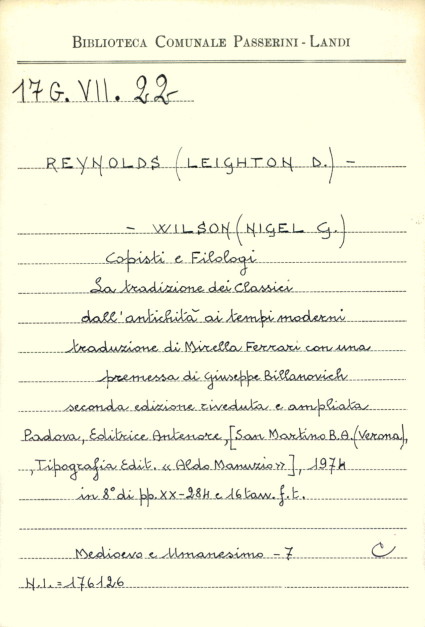 BIBLIOTECA COMUNALE PASSERINI - LANDI
17 G. VII. 22
REYNOLDS (LEIGHTON D.) -
- WILSON (NIGEL G.)
Copisti e Filologi
La tradizione dei Classici
dall'antichità ai tempi moderni
traduzione di Mirella Ferrari con una
premessa di Giuseppe Billanovich
seconda edizione riveduta e ampliata
Padova, Editrice Antenore, [San Martino B.A. (Verona),
, Tipografia Edit. « Aldo Manuzio » ], 1974
in 8° di pp. XX-284 e 16 tavv. f.t.
Medioevo e Umanesimo - 7 C
N.I. = 176126